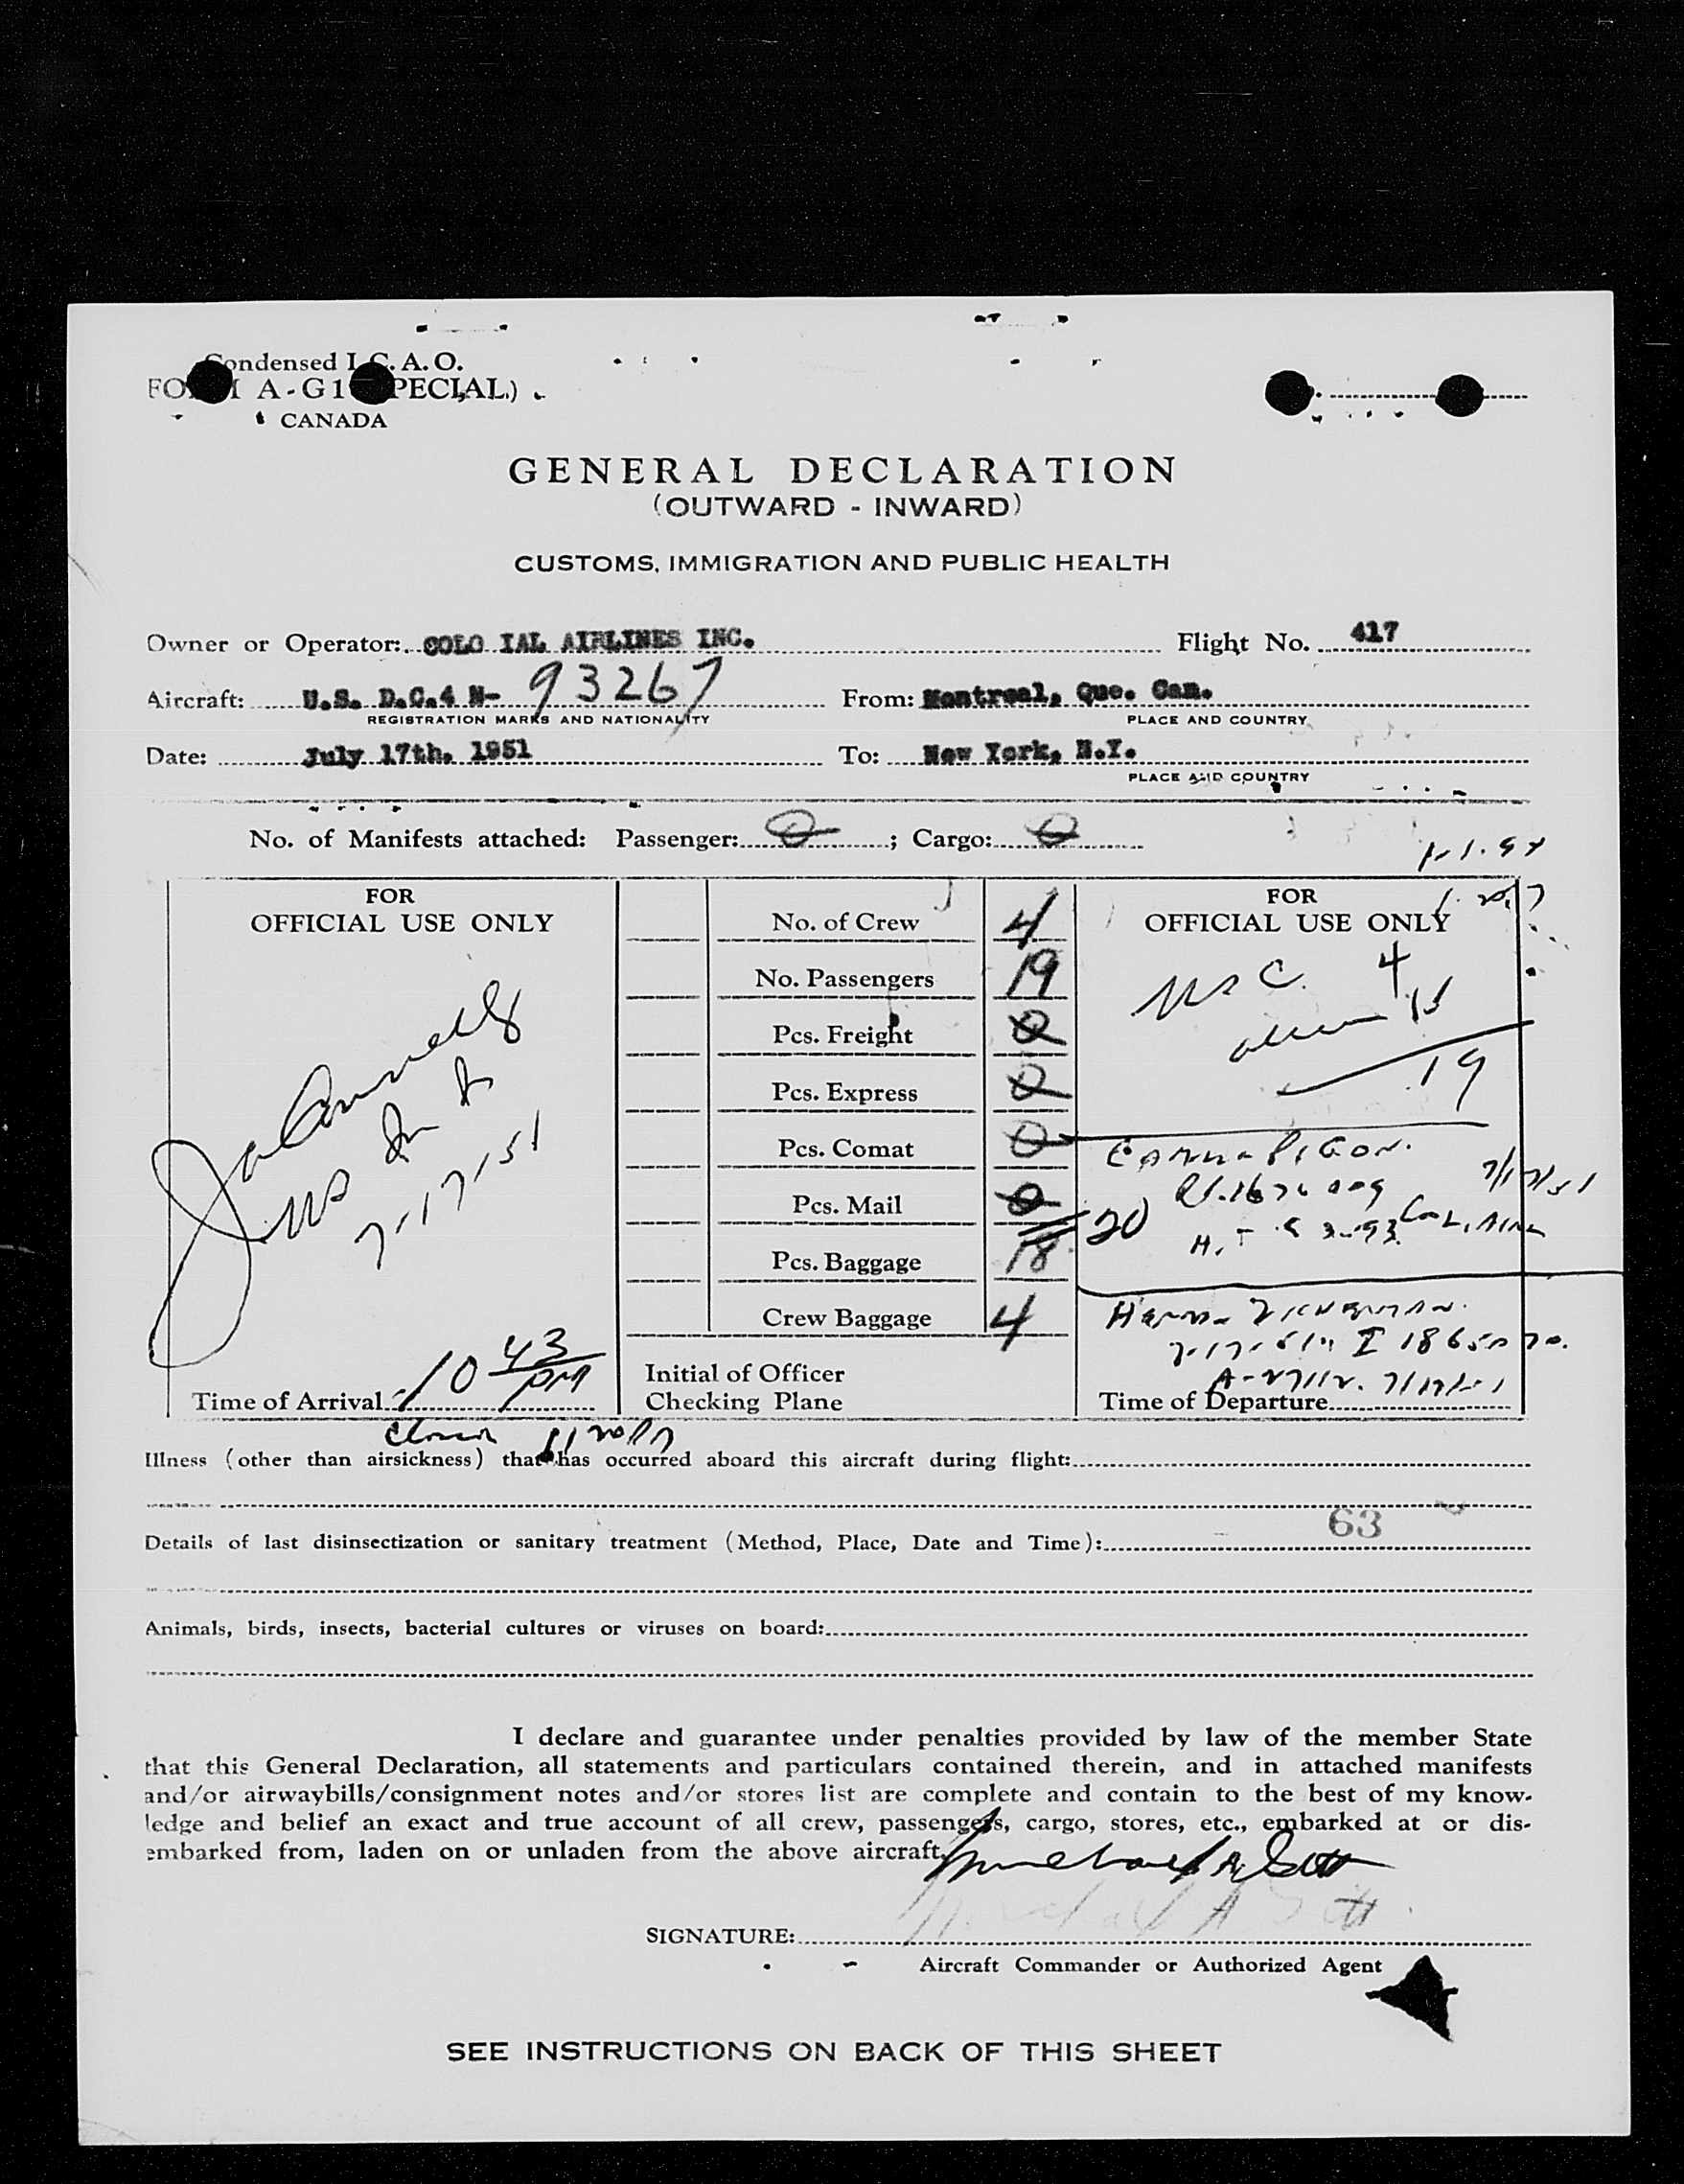 Condensed I.C.A.O.
FORM A-G1 (SPECIAL)
CANADA
GENERAL DECLARATION
(OUTWARD - INWARD)
CUSTOMS, IMMIGRATION AND PUBLIC HEALTH
Owner or Operator: COLO IAL AIRLINES INC. Flight No. 417
Aircraft: U.S. D.C.4 N- 93267 From: Montreal, Que. Can.
REGISTRATION MARKS AND NATIONALITY PLACE AND COUNTRY
Date: July 17th. 1951 To: New York, N.Y.
PLACE AND COUNTRY
No. of Manifests attached: Passenger: 0; Cargo: 0
FOR
OFFICIAL USE ONLY
7-17-51
Time of Arrival 10 43 PM
No. of Crew 4
No. Passengers 19
Pcs. Freight 0
Pcs. Express 0
Pcs. Comat 0
Pcs. Mail 0
20
Pcs. Baggage 18
Crew Baggage 4
Initial of Officer
Checking Plane
FOR
OFFICIAL USE ONLY
USC. 4
15
19
7/17/51
Time of Departure
Illness (other than airsickness) that has occurred aboard this aircraft during flight:
63
Details of last disinsectization or sanitary treatment (Method, Place, Date and Time):
Animals, birds, insects, bacterial cultures or viruses on board:
I declare and guarantee under penalties provided by law of the member State
that this General Declaration, all statements and particulars contained therein, and in attached manifests
and/or airwaybills/consignment notes and/or stores list are complete and contain to the best of my know-
ledge and belief an exact and true account of all crew, passengers, cargo, stores, etc., embarked at or dis-
embarked from, laden on or unladen from the above aircraft.
SIGNATURE:
Aircraft Commander or Authorized Agent
SEE INSTRUCTIONS ON BACK OF THIS SHEET